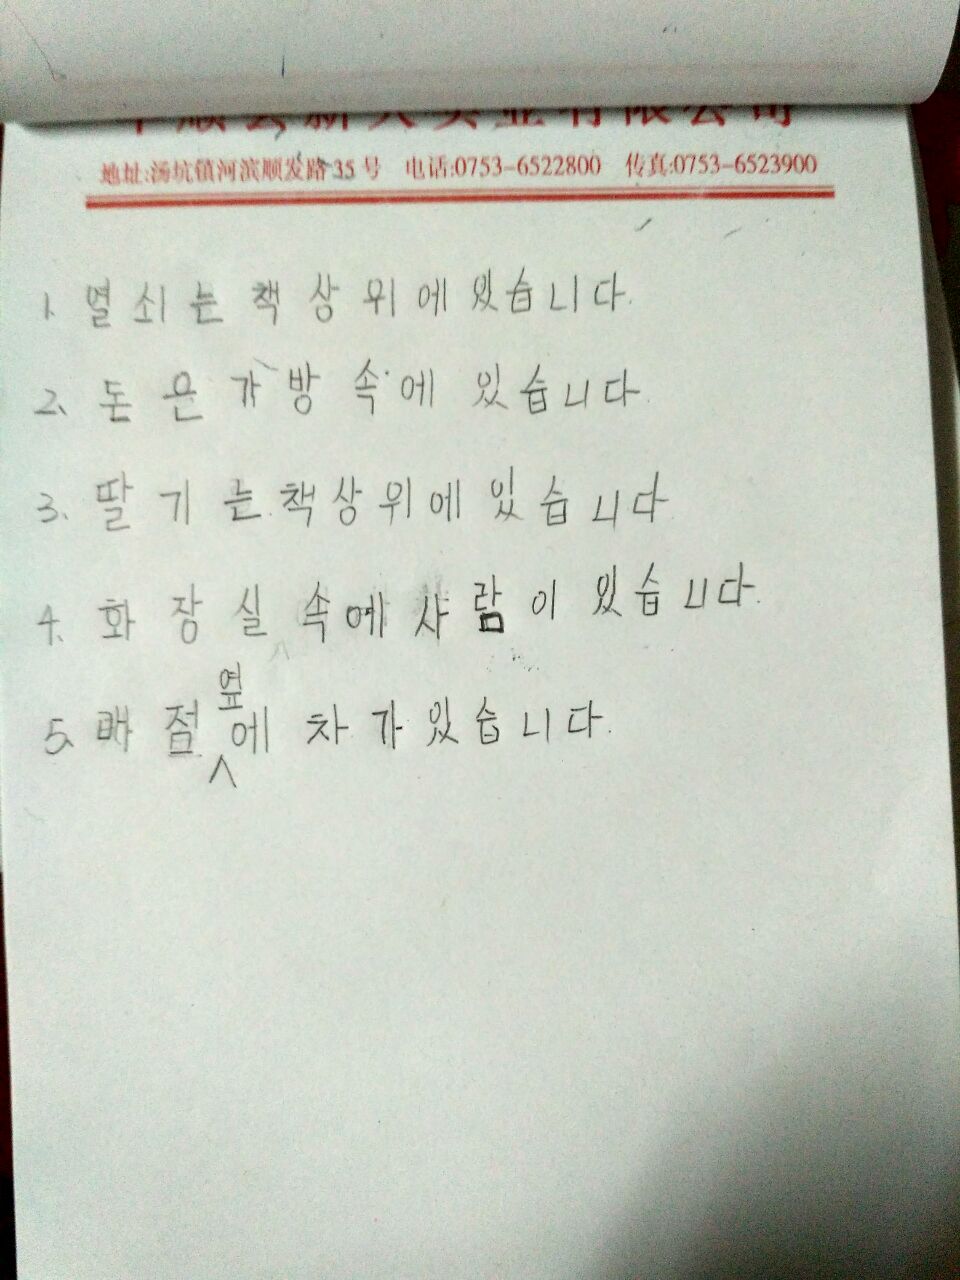 地址:汤坑镇河滨顺发路35号 电话:0753-6522800 传真:0753-6523900
1. 열쇠는 책상 위에 있습니다.
2. 돈은 가방 속에 있습니다.
3. 딸기는 책상 위에 있습니다
4. 화장실 속에 사람이 있습니다.
5. 배점 옆에 차가 있습니다.